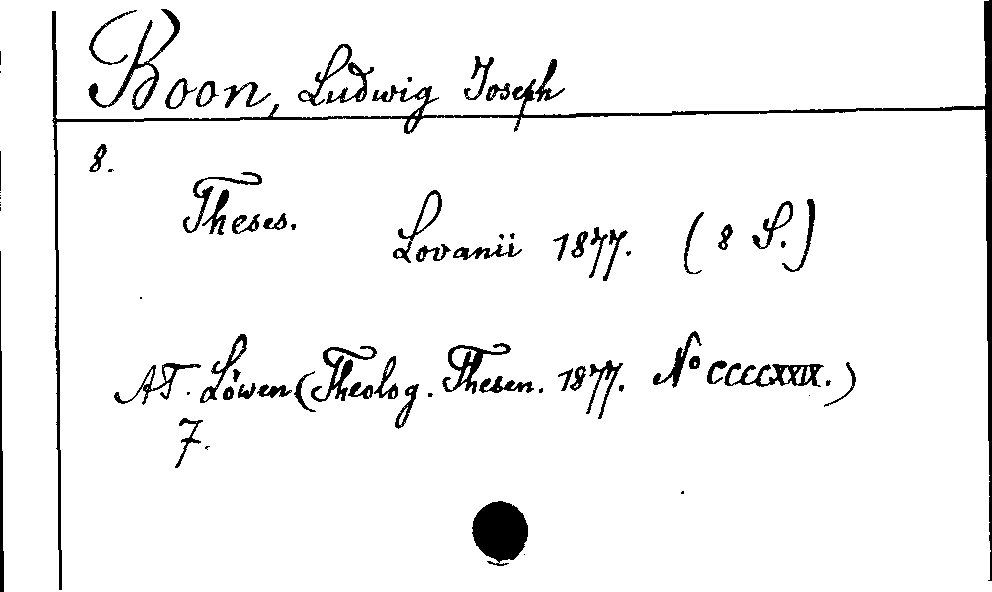 Boon, Ludwig Joseph
8.
Theses.
Lovanii 1877. (8 S.)
AT. Löwen (Theolog. Thesen. 1877. No CCCCXXIX.)
7.